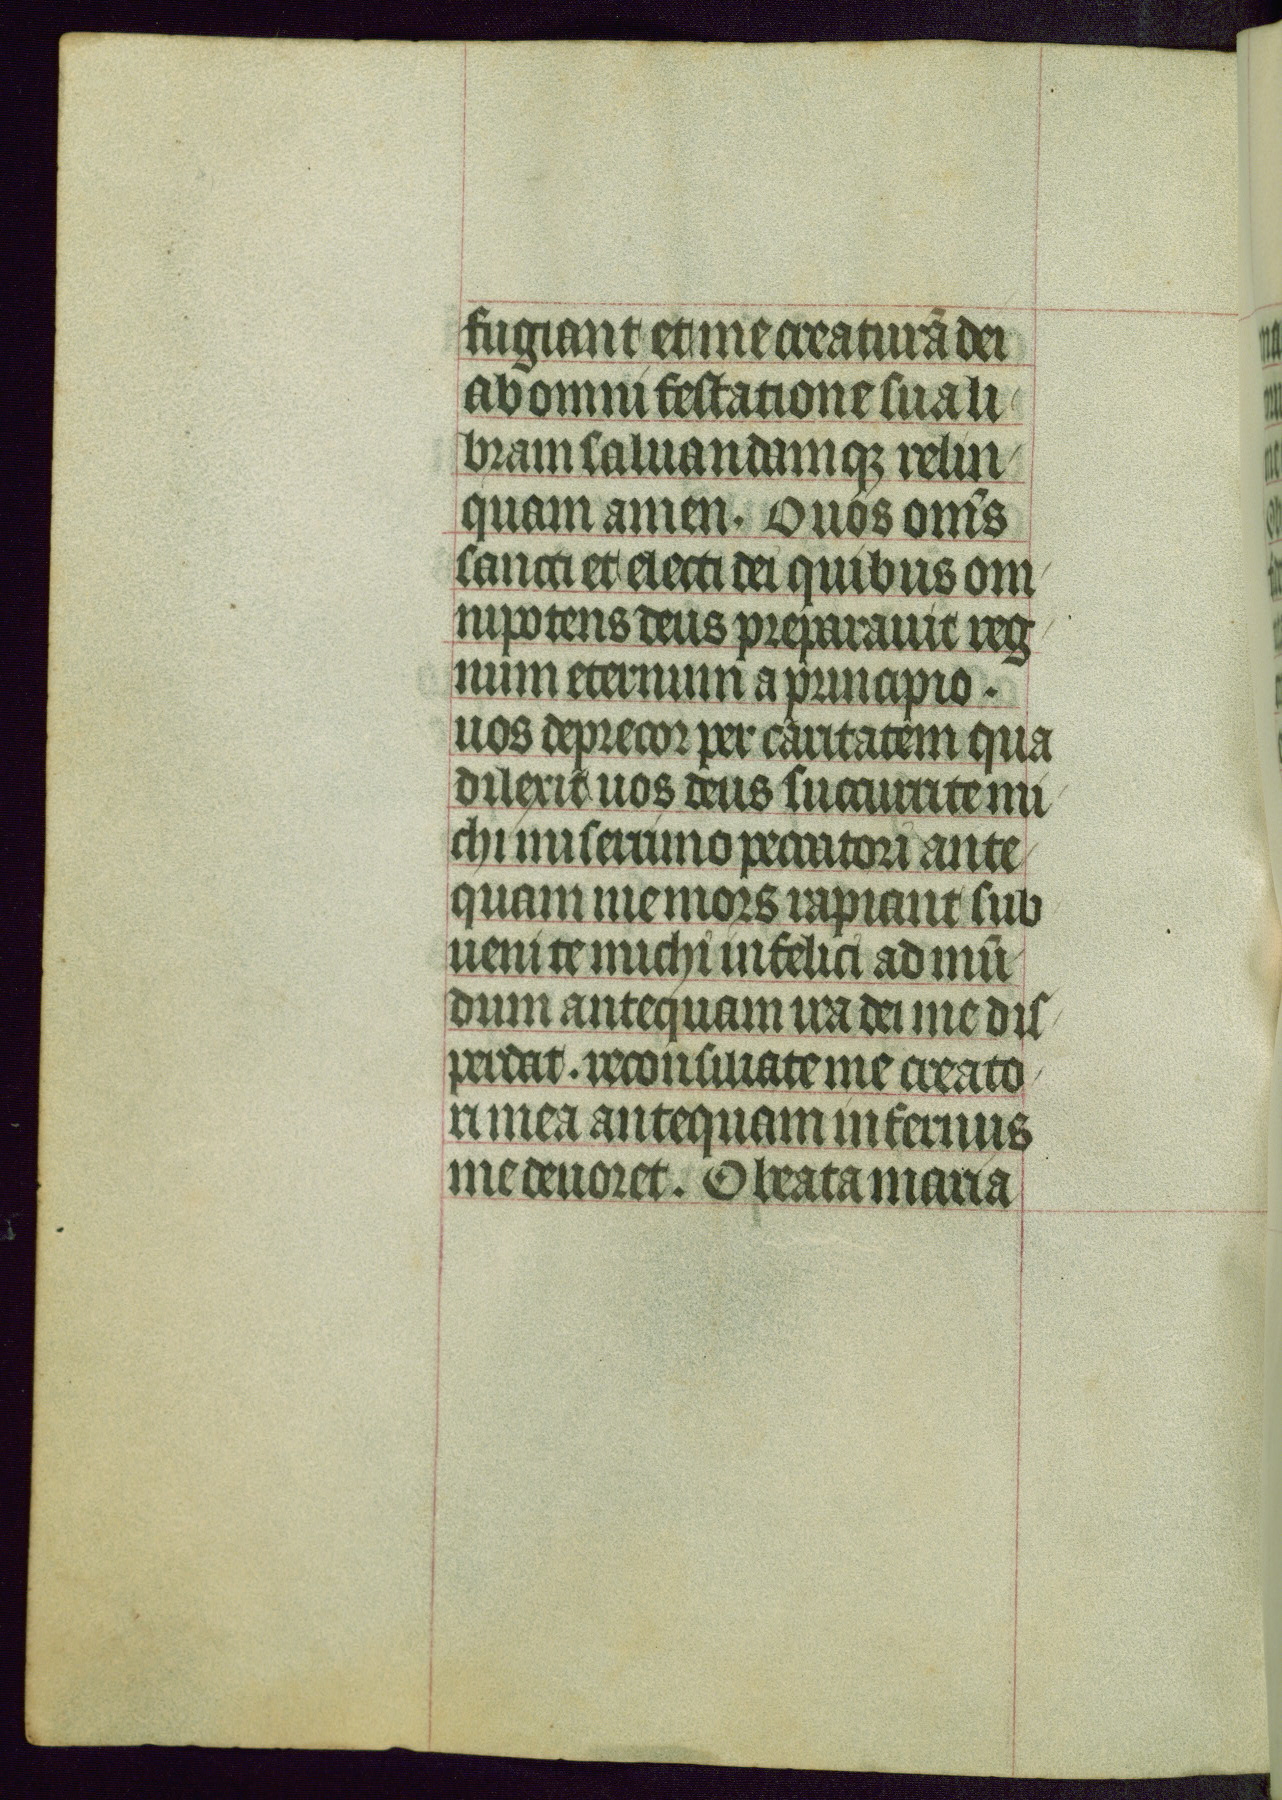 fugiant et me creaturā dei
ab omni festatione sua li
bram saluandamqꝫ relin
quam amen. O uos om̄s
sancti et electi dei quibus om
nipotens deus preparauit reg
num eternum a principio.
uos deprecor per caritatem qua
dilexit uos deus succurrite mi
chi miserrimo peccatori ante
quam me mors rapiant sub
uenite michi infelici ad mū
dum antequam ira dei me dis
perdat. reconsiliate me creato
ri mea antequam infernus
me deuoret. O beata maria